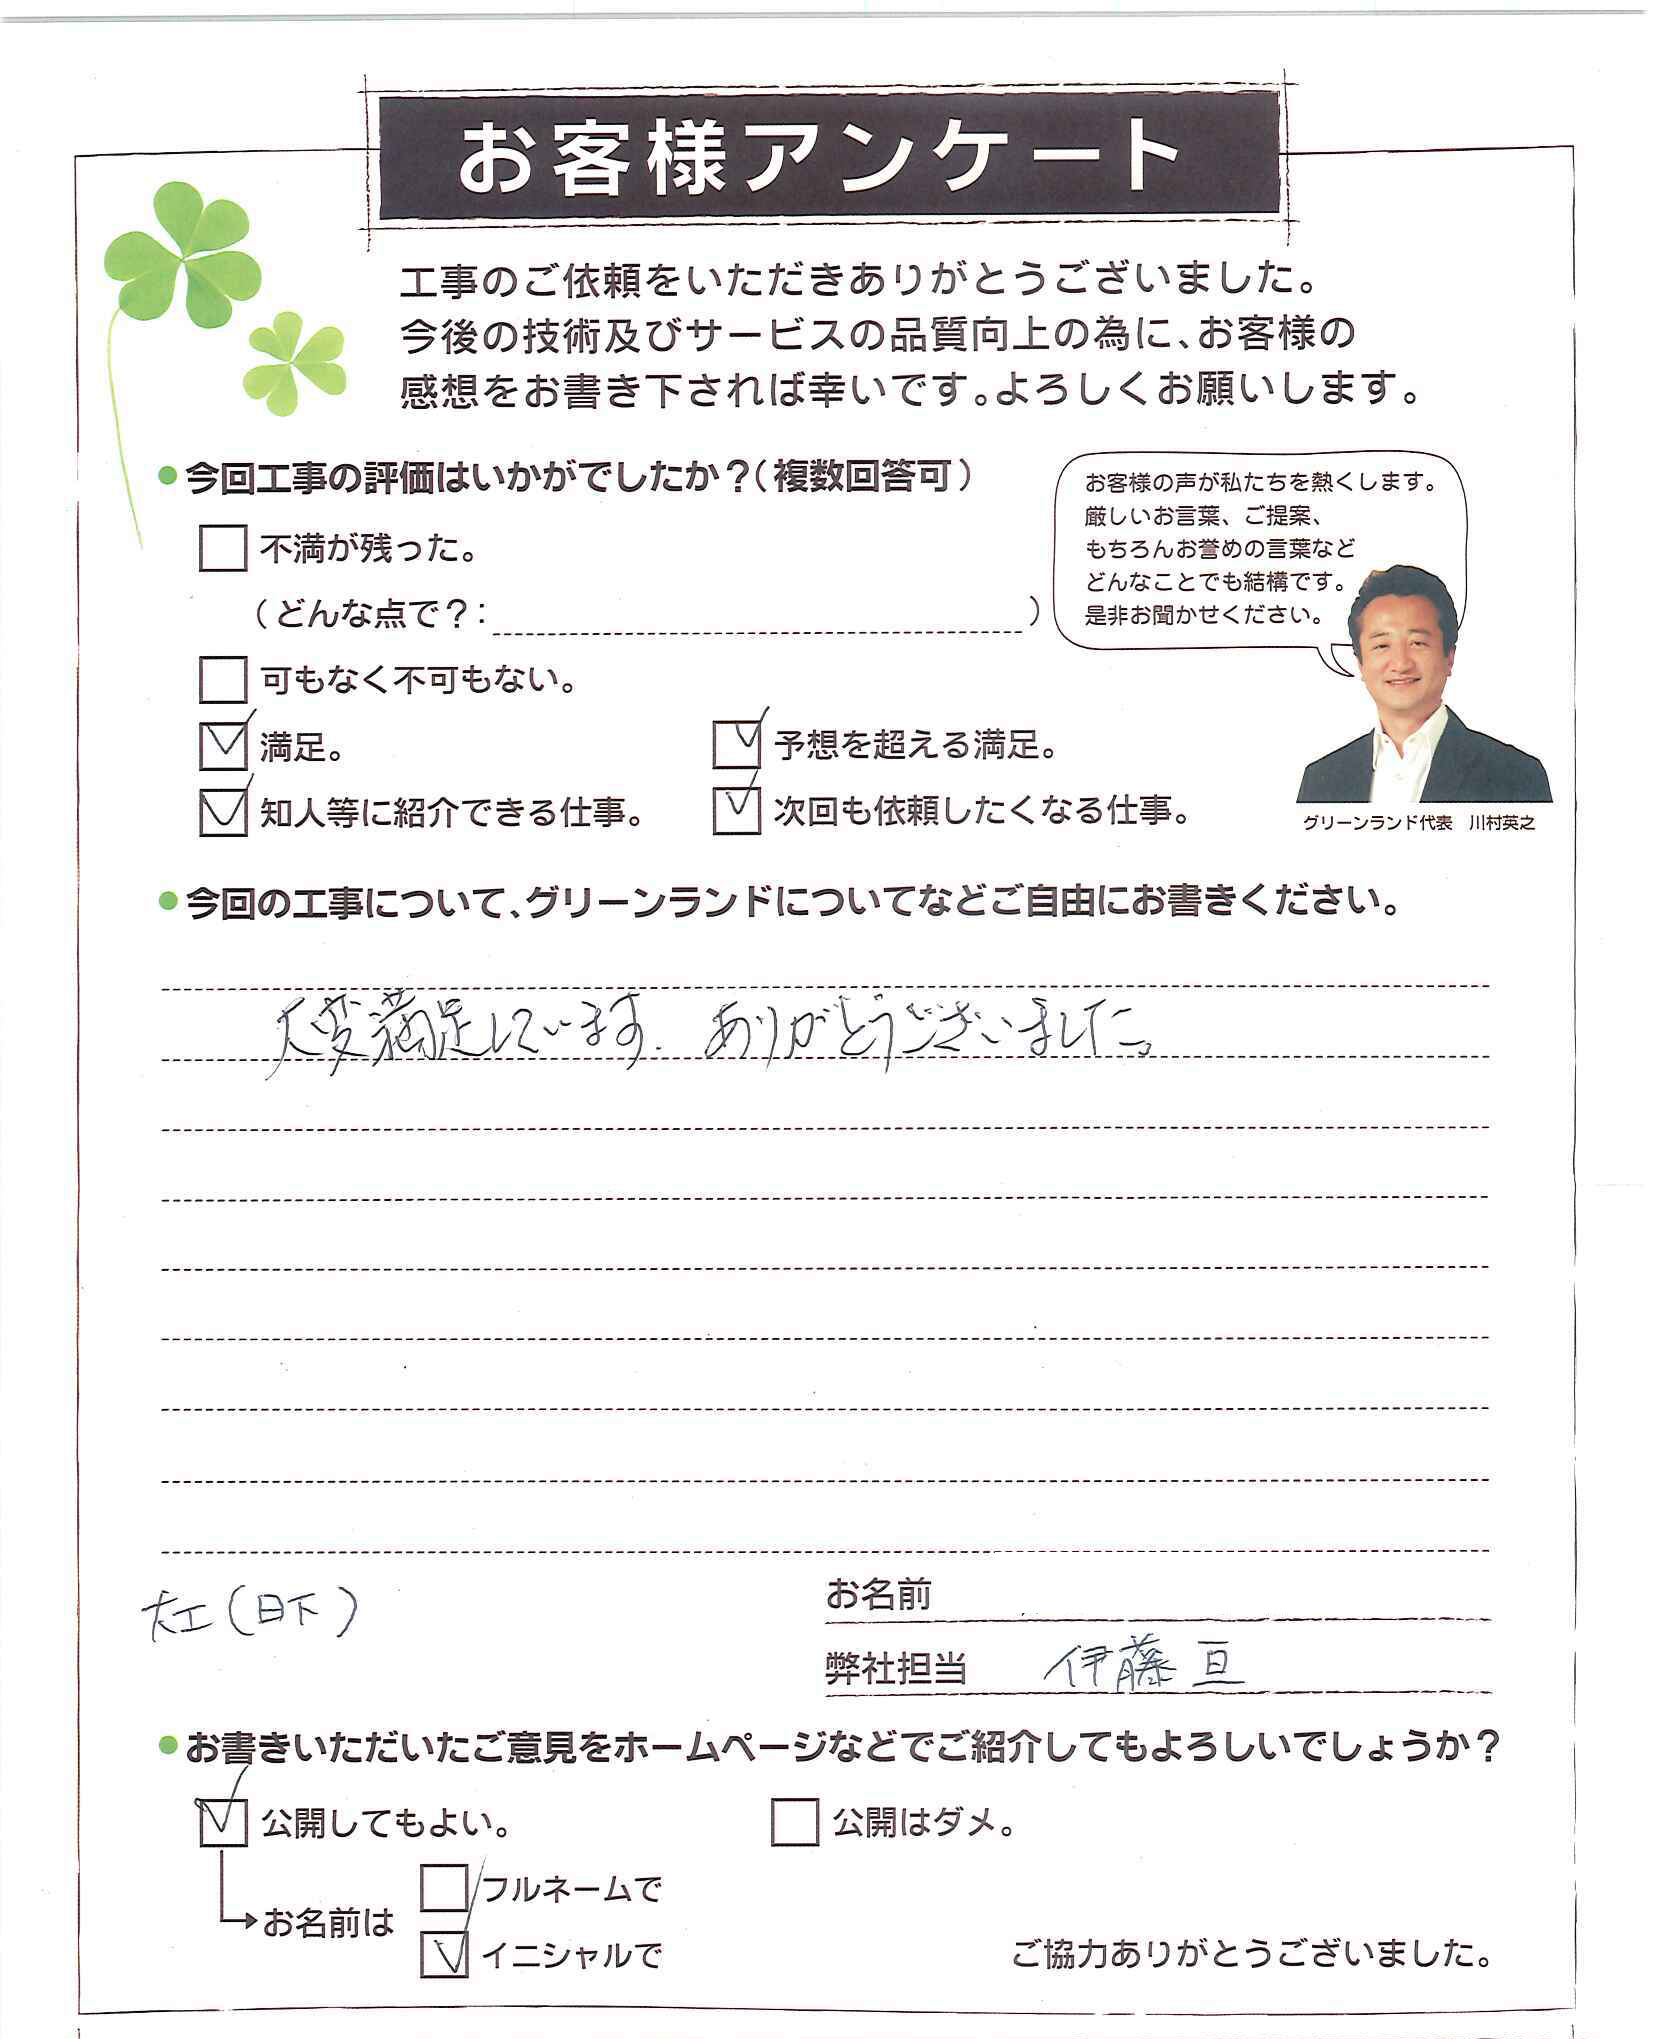 お客様アンケート
工事のご依頼をいただきありがとうございました。
今後の技術及びサービスの品質向上の為に、お客様の
感想をお書き下されば幸いです。よろしくお願いします。
●今回工事の評価はいかがでしたか？（複数回答可）
お客様の声が私たちを熱くします。
厳しいお言葉、ご提案、
もちろんお誉めの言葉など
どんなことでも結構です。
是非お聞かせください。
不満が残った。
（どんな点で？：　）
可もなく不可もない。
満足。
予想を超える満足。
知人等に紹介できる仕事。
次回も依頼したくなる仕事。
グリーンランド代表　川村英之
●今回の工事について、グリーンランドについてなどご自由にお書きください。
大変満足しています. ありがとうございました。
大工（日下）
お名前
弊社担当　伊藤 亘
●お書きいただいたご意見をホームページなどでご紹介してもよろしいでしょうか？
公開してもよい。
公開はダメ。
お名前は
フルネームで
イニシャルで
ご協力ありがとうございました。